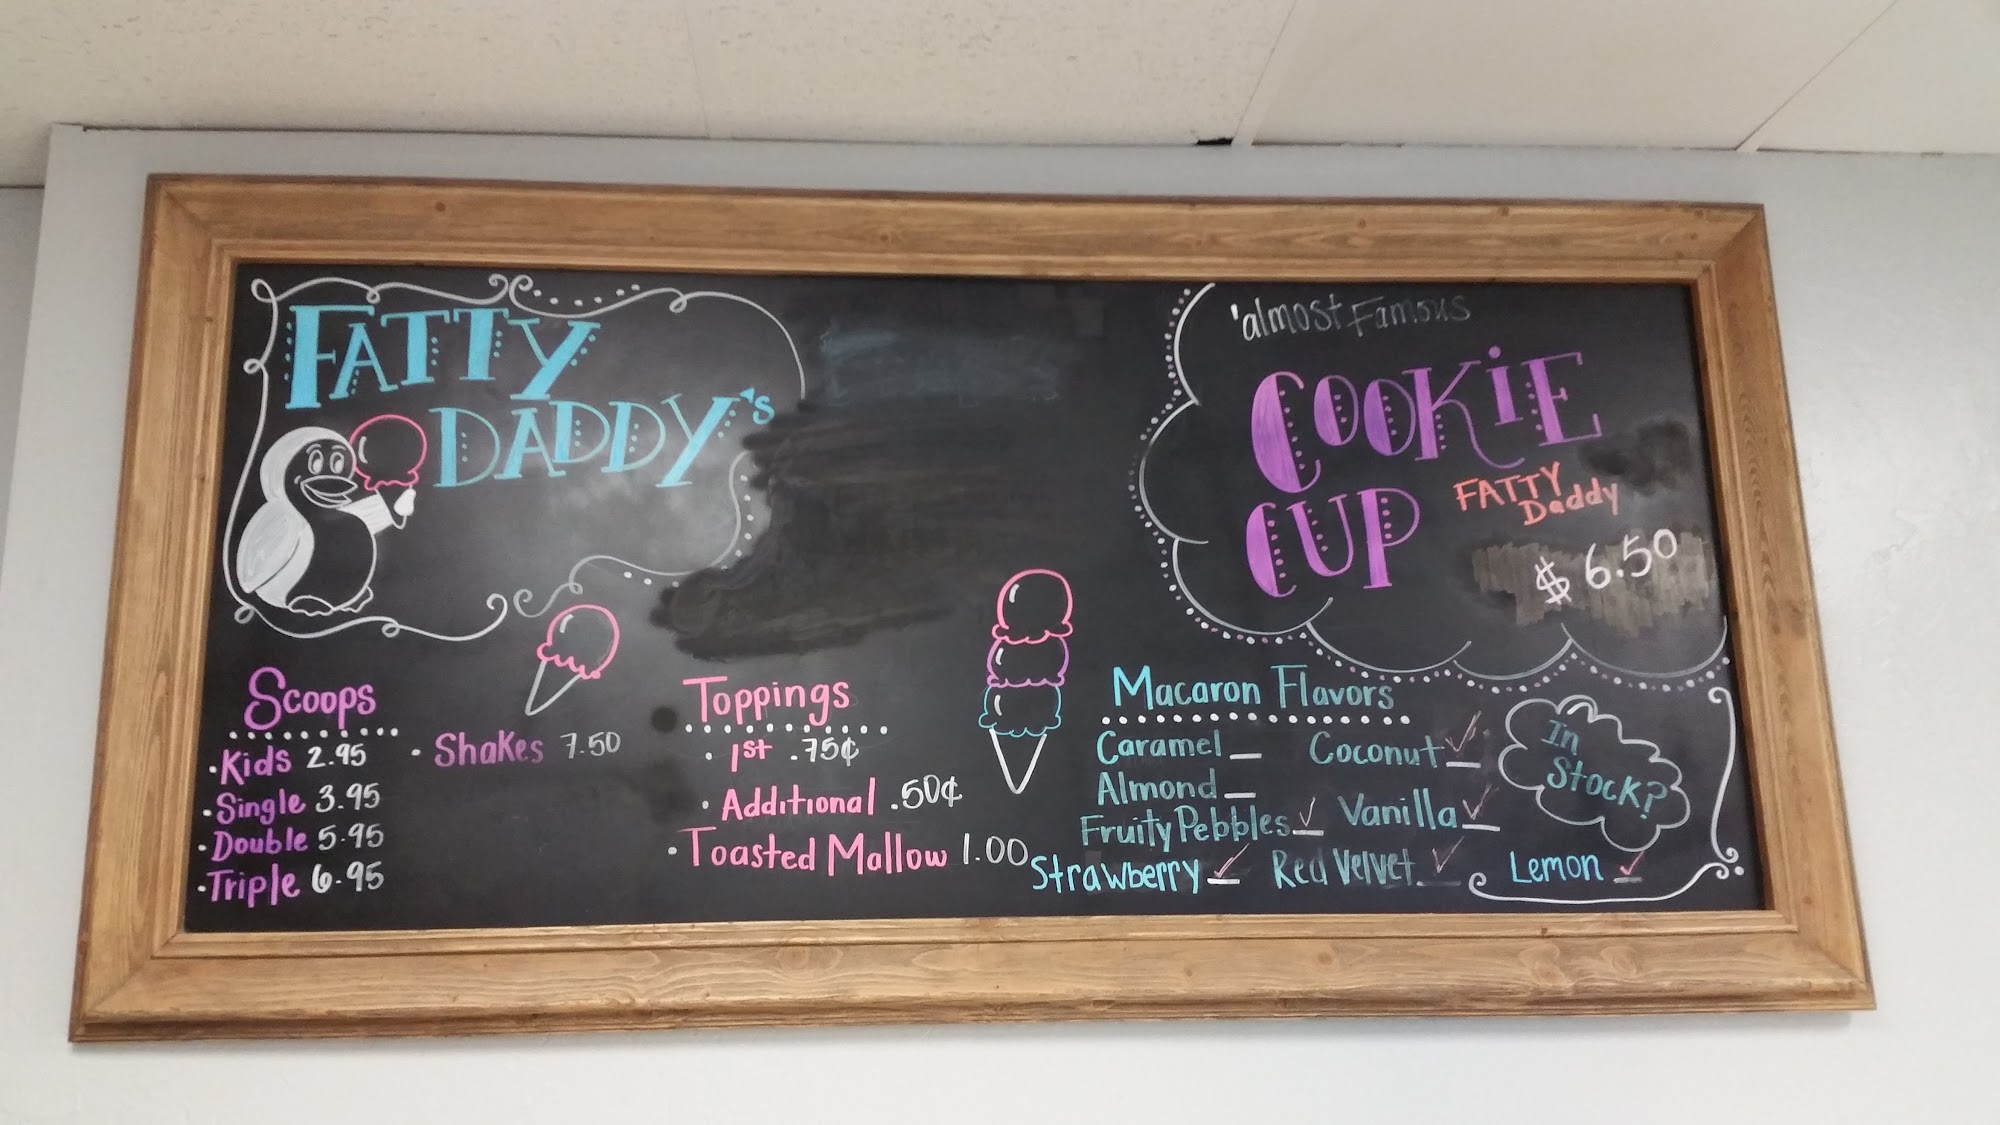 FATTY
DADDY's
'almost Famous
COOKiE
CUP
FATTY
Daddy
$6.50
Scoops
·Kids 2.95
·Single 3.95
·Double 5.95
·Triple 6.95
· Shakes 7.50
Toppings
· 1st .75¢
· Additional .50¢
·Toasted Mallow 1.00
Macaron Flavors
Caramel _ Coconut ✓
Almond _
Fruity Pebbles ✓ Vanilla ✓
Strawberry ✓ Red Velvet ✓ Lemon ✓
In
Stock?